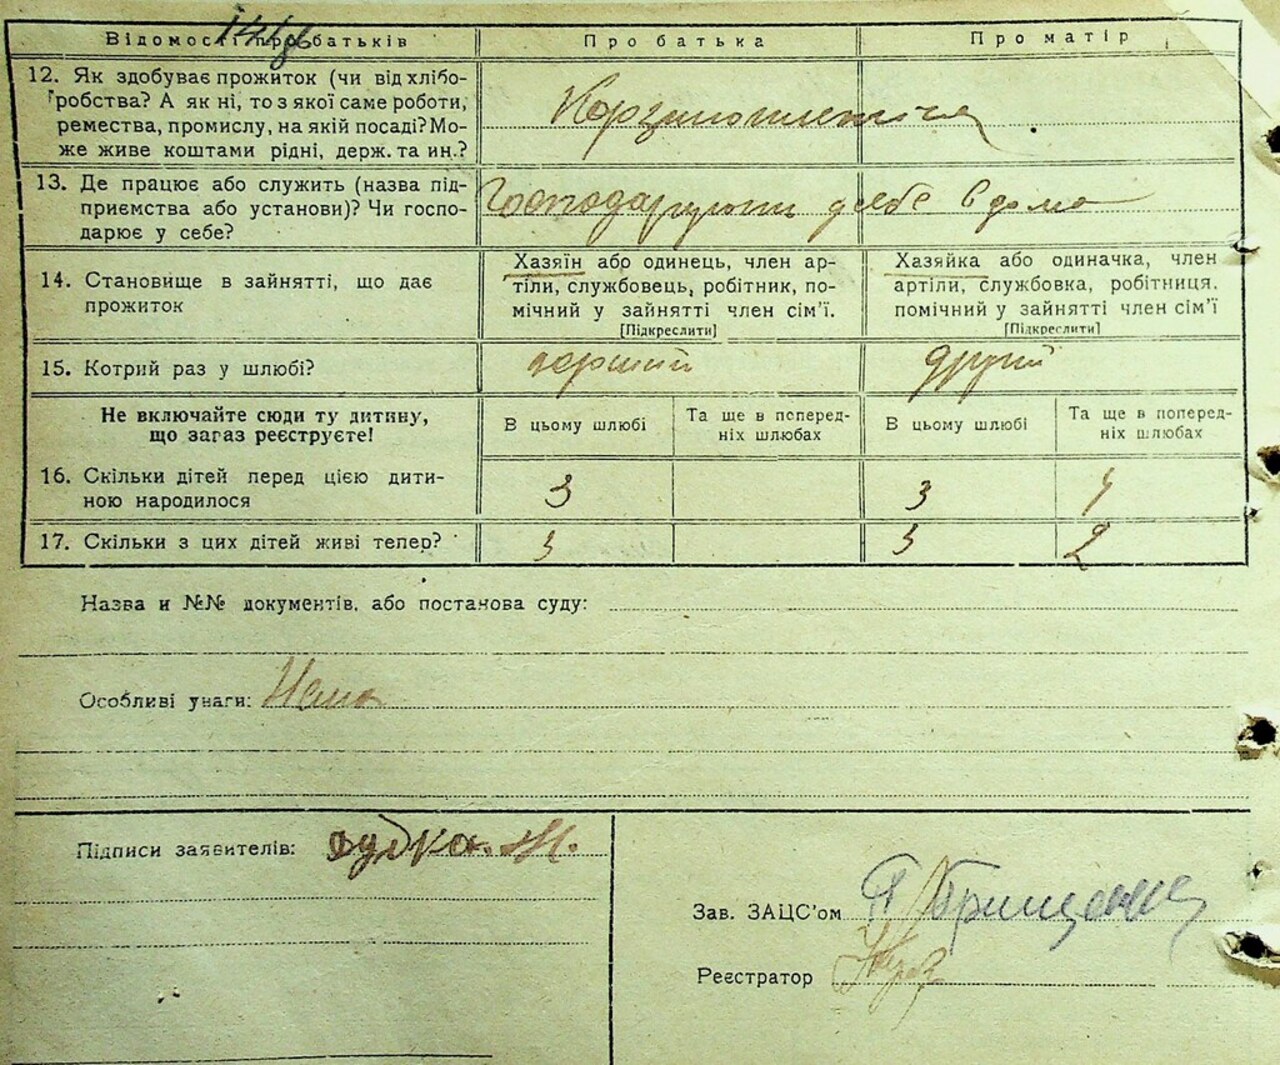 Відомості про батьків
Про батька
Про матір
12. Як здобуває прожиток (чи від хлібо-
робства? А як ні, то з якої саме роботи,
ремества, промислу, на якій посаді? Мо-
же живе коштами рідні, держ. та ин.?
13. Де працює або служить (назва під-
приємства або установи)? Чи госпо-
дарює у себе?
Господарують у себе вдома
14. Становище в зайнятті, що дає
прожиток
Хазяїн або одинець, член ар-
тіли, службовець, робітник, по-
мічний у зайнятті член сім'ї.
[Підкреслити]
Хазяйка або одиначка, член
артіли, службовка, робітниця.
помічний у зайнятті член сім'ї
[Підкреслити]
15. Котрий раз у шлюбі?
перший
другий
Не включайте сюди ту дитину,
що зараз реєструєте!
В цьому шлюбі
Та ще в поперед-
ніх шлюбах
В цьому шлюбі
Та ще в поперед-
ніх шлюбах
16. Скільки дітей перед цією дити-
ною народилося
3
3
17. Скільки з цих дітей живі тепер?
3
3
2
Назва и №№ документів, або постанова суду:
Особливі уваги: Нема
Підписи заявителів:
Зав. ЗАЦС'ом
Реєстратор